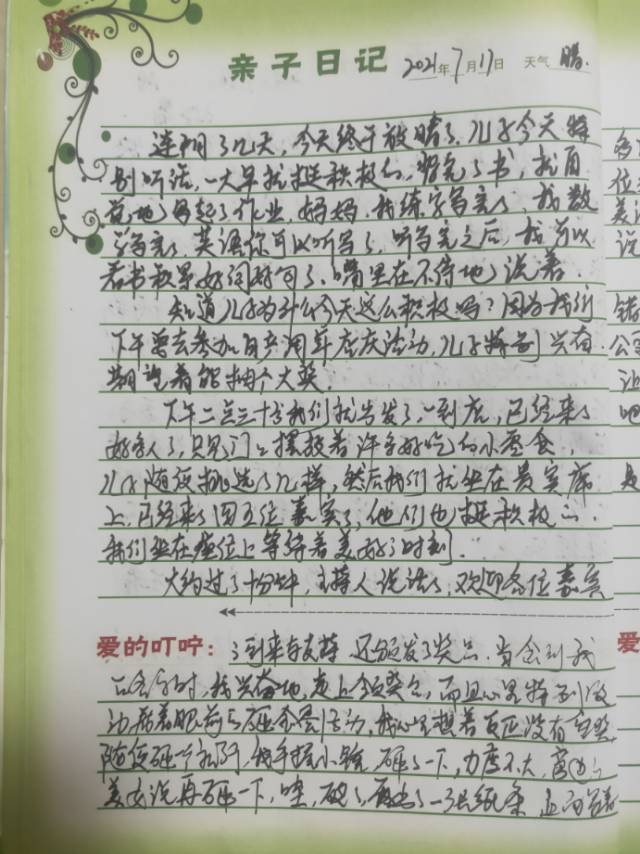 亲子日记 2021年7月17日 天气 晴.
连阴了几天，今天终于放晴了，儿子今天特
别听话，一大早就挺积极的，背完了书，就自
觉地写起了作业，妈妈，我练字写完了，我数
学写完了，英语你可以听写了，听写完之后，我可以
看书积累好词好句了，嘴里在不停地说着.
知道儿子为什么今天这么积极吗？因为我们
下午要去参加周年店庆活动，儿子特别兴奋
期望着能抽个大奖.
下午二点三十分我们就出发了，一到店，已经来了
好多人了，只见门口摆放着许多好吃的小零食，
儿子随便挑选了几样，然后我们就坐在贵宾席
上，已经来了四五位嘉宾了，他们也挺积极的.
我们坐在座位上等待着美好的时刻.
大约过了十分钟，主持人说话了，欢迎各位嘉宾
爱的叮咛：的到来与支持，还颁发了奖品，当念到我
的名字时，我兴奋地走上领奖台，而且心里特别激
动看着眼前的砸金蛋活动，我心里想着反正没有空奖
随便砸一个就行，我手握小锤，砸了一下，力度不大，旁边的
美女说再砸一下，哇，破了，露出了一张纸条，上面写着
多
位
美
说
错
公
让
吧
是
爱